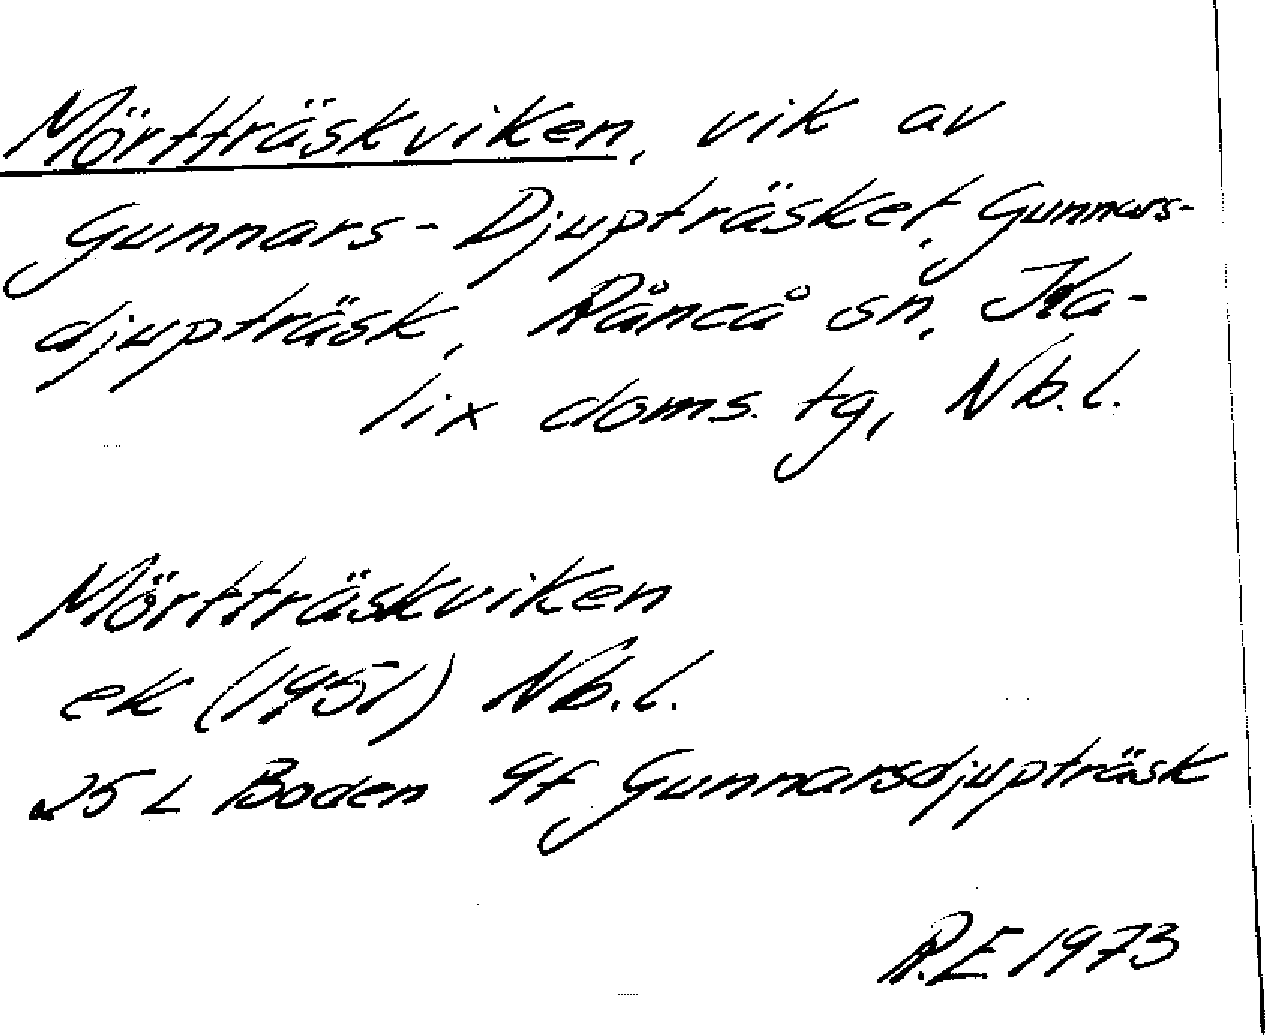 Mörtträskviken, vik av
Gunnars-Djupträsket, Gunnars-
djupträsk, Råneå sn, Ka-
lix doms. tg, Nb.l.
Mörtträskviken
ek (1951) Nb.l.
25 L Boden 9f Gunnarsdjupträsk
R.E 1973